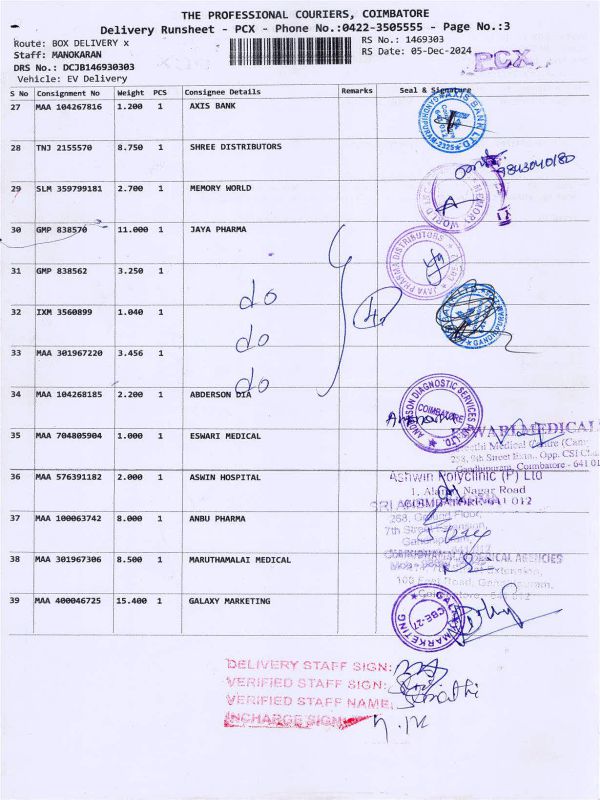 THE PROFESSIONAL COURIERS, COIMBATORE
Delivery Runsheet - PCX - Phone No.:0422-3505555 - Page No.:3
Route: BOX DELIVERY x
RS No.: 1469303
Staff: MANOKARAN
RS Date: 05-Dec-2024
PCX
DRS No.: DCJB146930303
Vehicle: EV Delivery
S No Consignment No Weight PCS Consignee Details Remarks Seal & Signature
27 MAA 104267816 1.200 1 AXIS BANK
AXIS BANK LTD
28 TNJ 2155570 8.750 1 SHREE DISTRIBUTORS
9843040180
29 SLM 359799181 2.700 1 MEMORY WORLD
MEMORY WORLD
30 GMP 838570 11.000 1 JAYA PHARMA
JAYA PHARMA DISTRIBUTORS
31 GMP 838562 3.250 1
do
32 IXM 3560899 1.040 1
do
33 MAA 301967220 3.456 1
do
34 MAA 104268185 2.200 1 ABDERSON DIA
ANDERSON DIAGNOSTIC SERVICES PVT. LTD
COIMBATORE
35 MAA 704805904 1.000 1 ESWARI MEDICAL
Gandhipuram, Coimbatore - 641 01
36 MAA 576391182 2.000 1 ASWIN HOSPITAL
Ashwin Polyclinic (P) Ltd
1, Alamu Nagar Road
COIMBATORE-641 012
37 MAA 100063742 8.000 1 ANBU PHARMA
268, Ground Floor,
7th Street Extension,
38 MAA 301967306 8.500 1 MARUTHAMALAI MEDICAL
MEDICAL AGENCIES
39 MAA 400046725 15.400 1 GALAXY MARKETING
GALAXY MARKETING
CBE-27
DELIVERY STAFF SIGN:
VERIFIED STAFF SIGN:
VERIFIED STAFF NAME:
INCHARGE SIGN